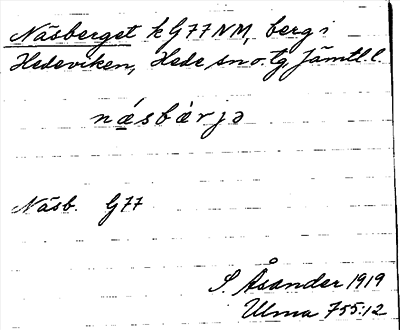 Näsberget k G77NM, berg i
Hedeviken, Hede sn o. tg Jämtl. l.
nä́sbà̈rjə
Näsb. G77
S. Åsander 1919
Ulma 755:12